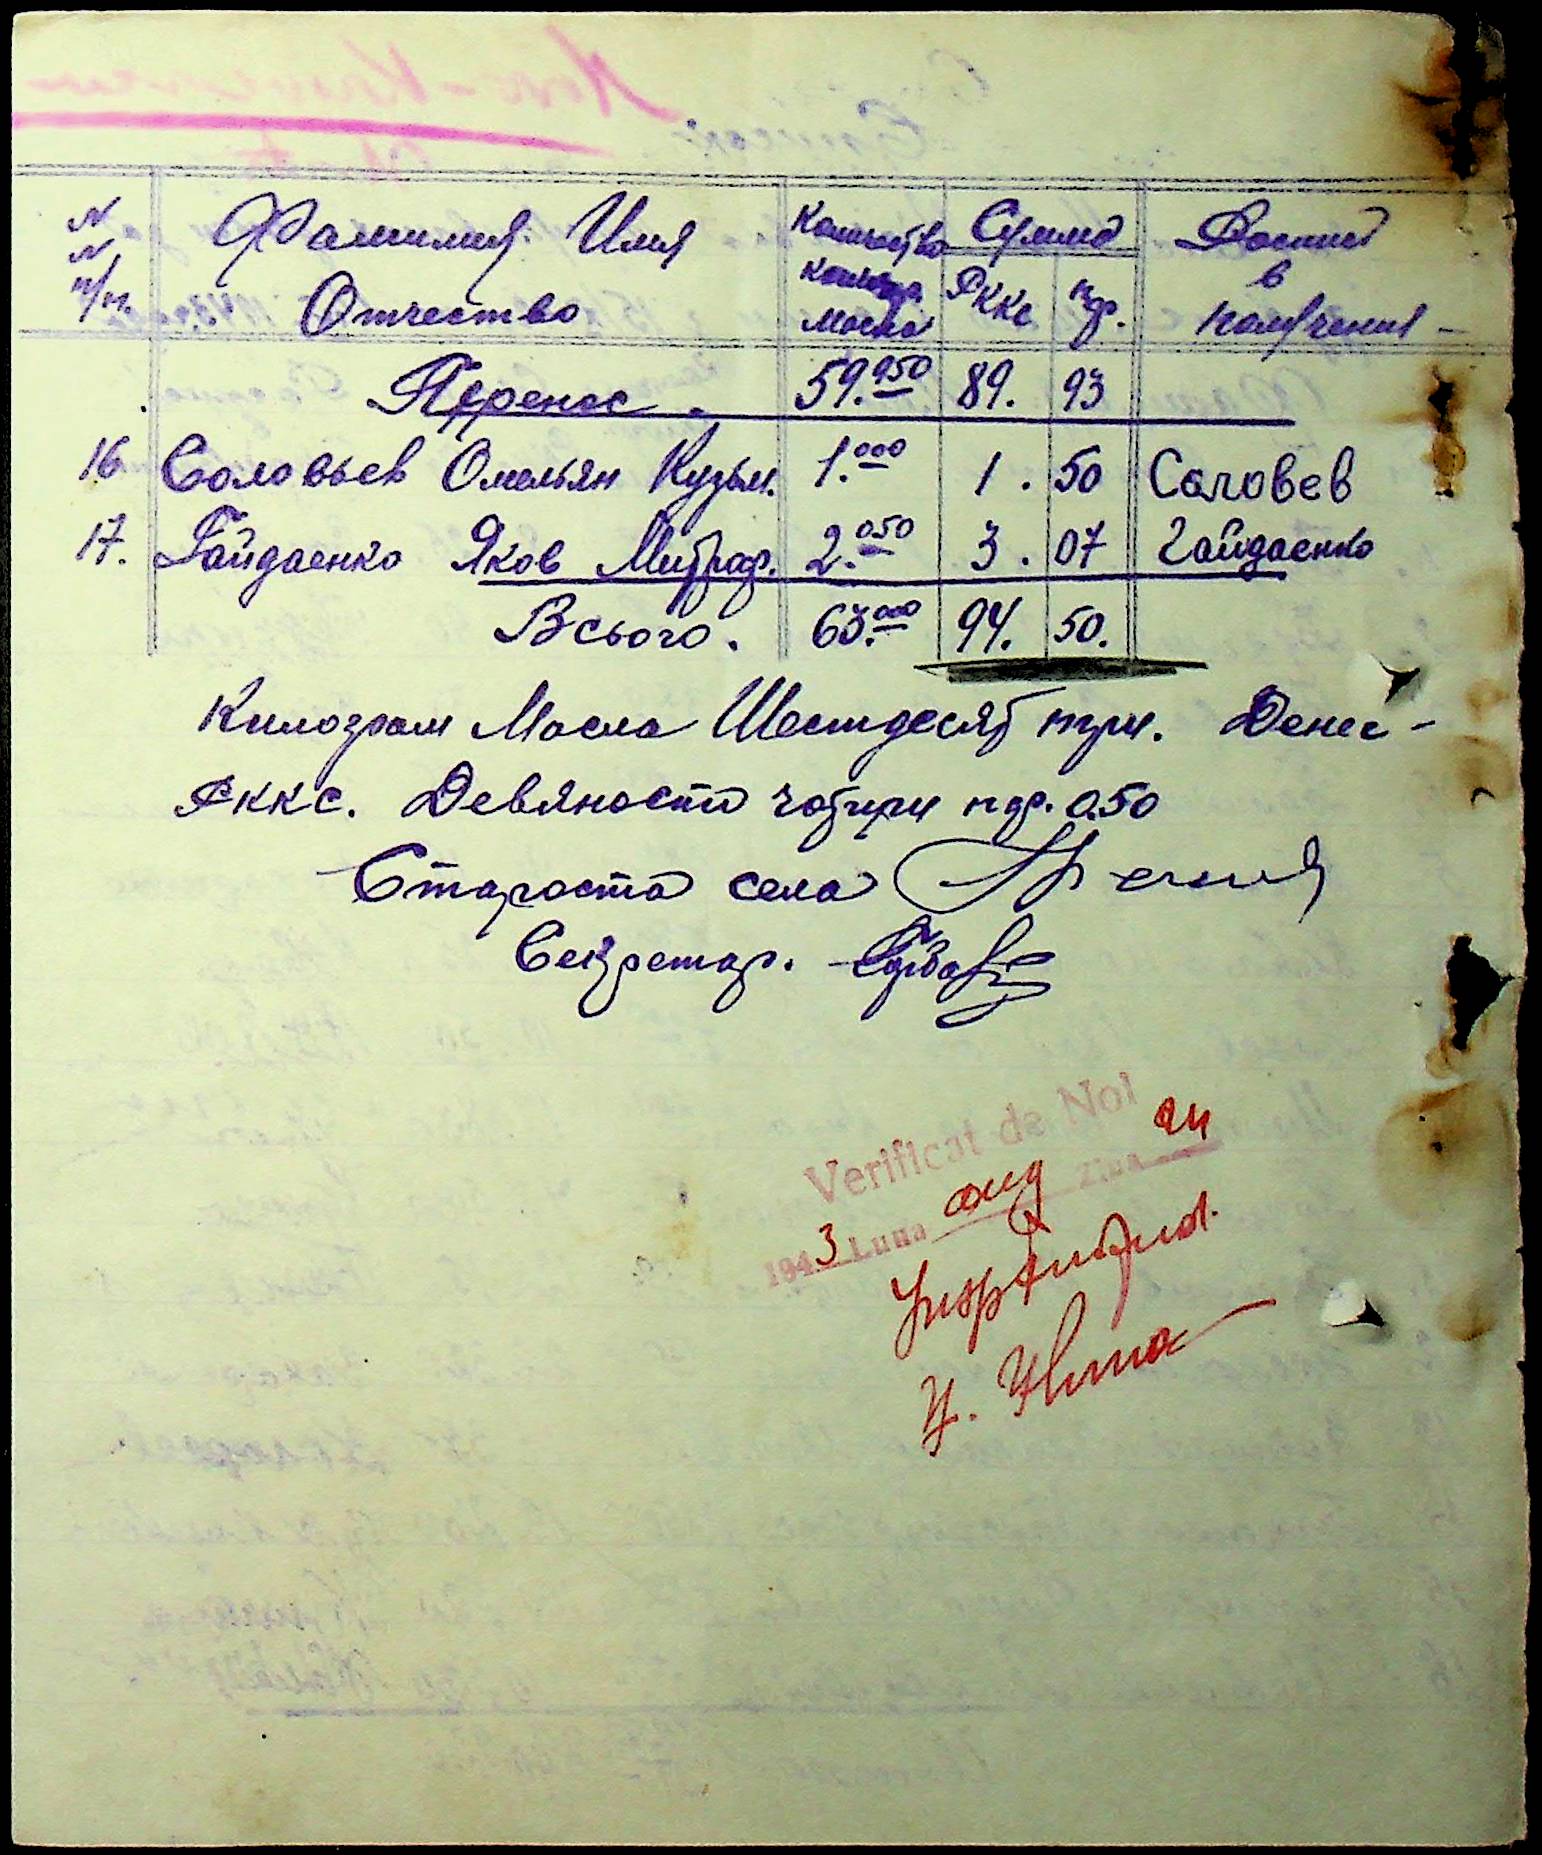 N Фамилия Имя Количество Сумма Роспис
N Отчество килогр. РККС пф. в
п/п. масла получении -
Перенос. 59.950 89. 93
16 Соловьев Омельян Кузьм. 1.000 1. 50 Саловев
17. Гайдаенко Яков Митроф. 2.050 3. 07 Гайдаенко
Всього. 63.000 94. 50.
Килограм Масла Шестдесят три. Денег -
РККС. Девяносто чотири пф. 0.50
Староста села
Секретар.
Verificat de Noi
1943 Luna aug Ziua 24